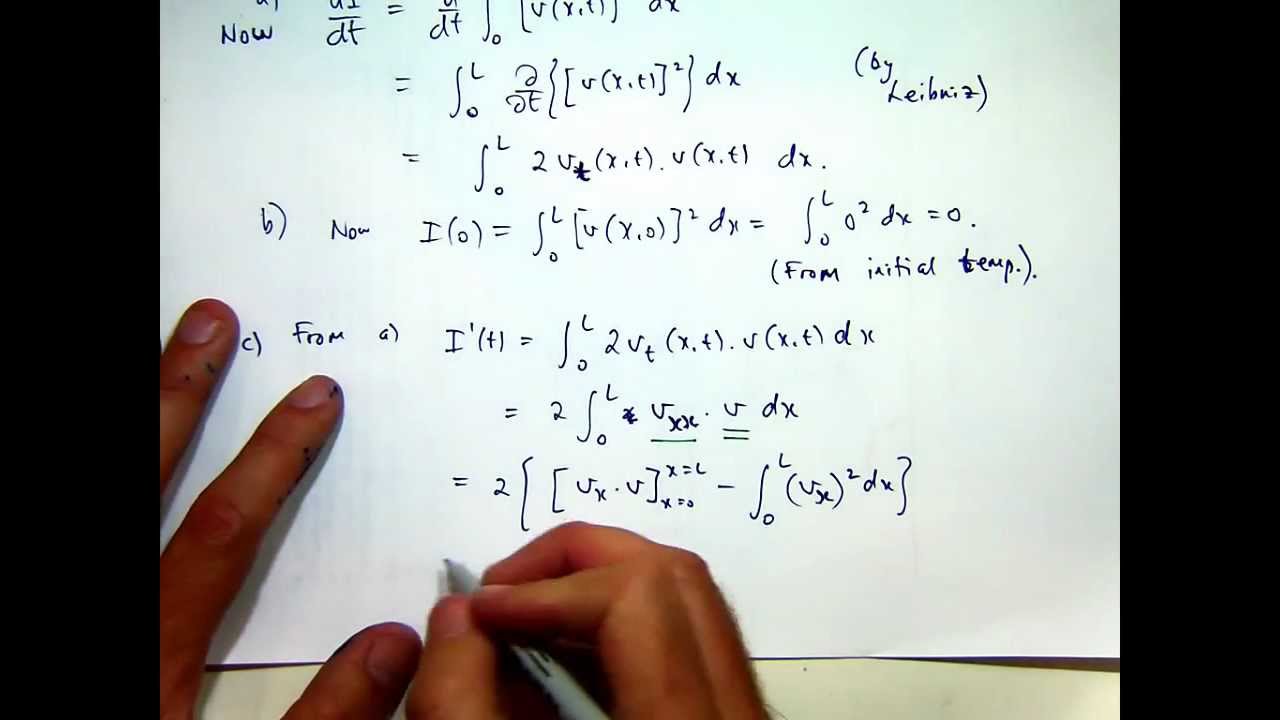 Now dI/dt = d/dt ∫₀ [v(x,t)]² dx
= ∫₀ᴸ ∂/∂t {[v(x,t)]²} dx (by Leibniz)
= ∫₀ᴸ 2 vₜ(x,t) . v(x,t) dx.
b) Now I(0) = ∫₀ᴸ [v(x,0)]² dx = ∫₀ᴸ 0² dx = 0.
(From initial temp.).
c) From a) I'(t) = ∫₀ᴸ 2 vₜ (x,t) . v(x,t) dx
= 2 ∫₀ᴸ vₓₓ . v dx
= 2 { [vₓ . v]ₓ₌₀ˣ⁼ᴸ − ∫₀ᴸ (vₓ)² dx }